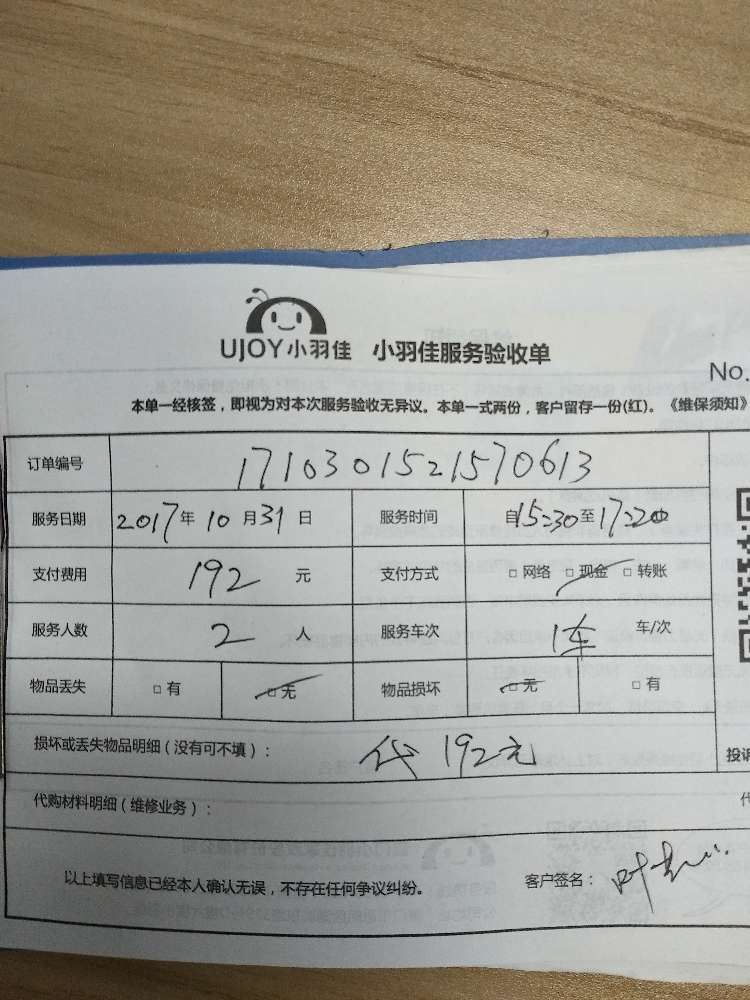 UJOY小羽佳 小羽佳服务验收单
No.
本单一经核签，即视为对本次服务验收无异议。本单一式两份，客户留存一份(红)。《维保须知》
订单编号 1710301521570613
服务日期 2017年 10 月 31 日 服务时间 自15:30至17:20
支付费用 192 元 支付方式 □ 网络 □ 现金 □ 转账
服务人数 2 人 服务车次 1车 车/次
物品丢失 □ 有 □ 无 物品损坏 □ 无 □ 有
损坏或丢失物品明细（没有可不填）： 代 192元
投诉
代购材料明细（维修业务）：
以上填写信息已经本人确认无误，不存在任何争议纠纷。 客户签名：